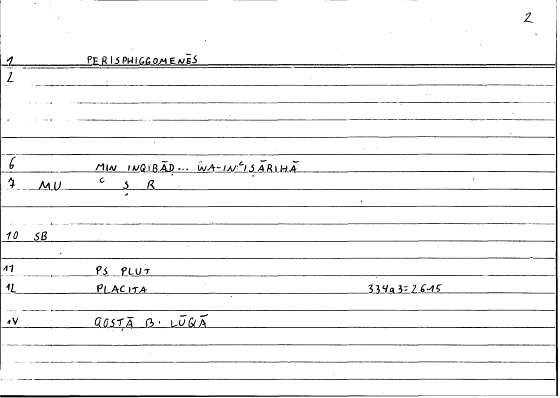 2
1 PERISPHIGGOMENĒS
2
6 MIN INQIBĀḌ... WA-IN-ʿIṢĀRIHĀ
7 MU ʿ Ṣ R
10 SB
11 PS PLUT
12 PLACITA 334a3=26-15
QOSṬĀ B. LŪQĀ